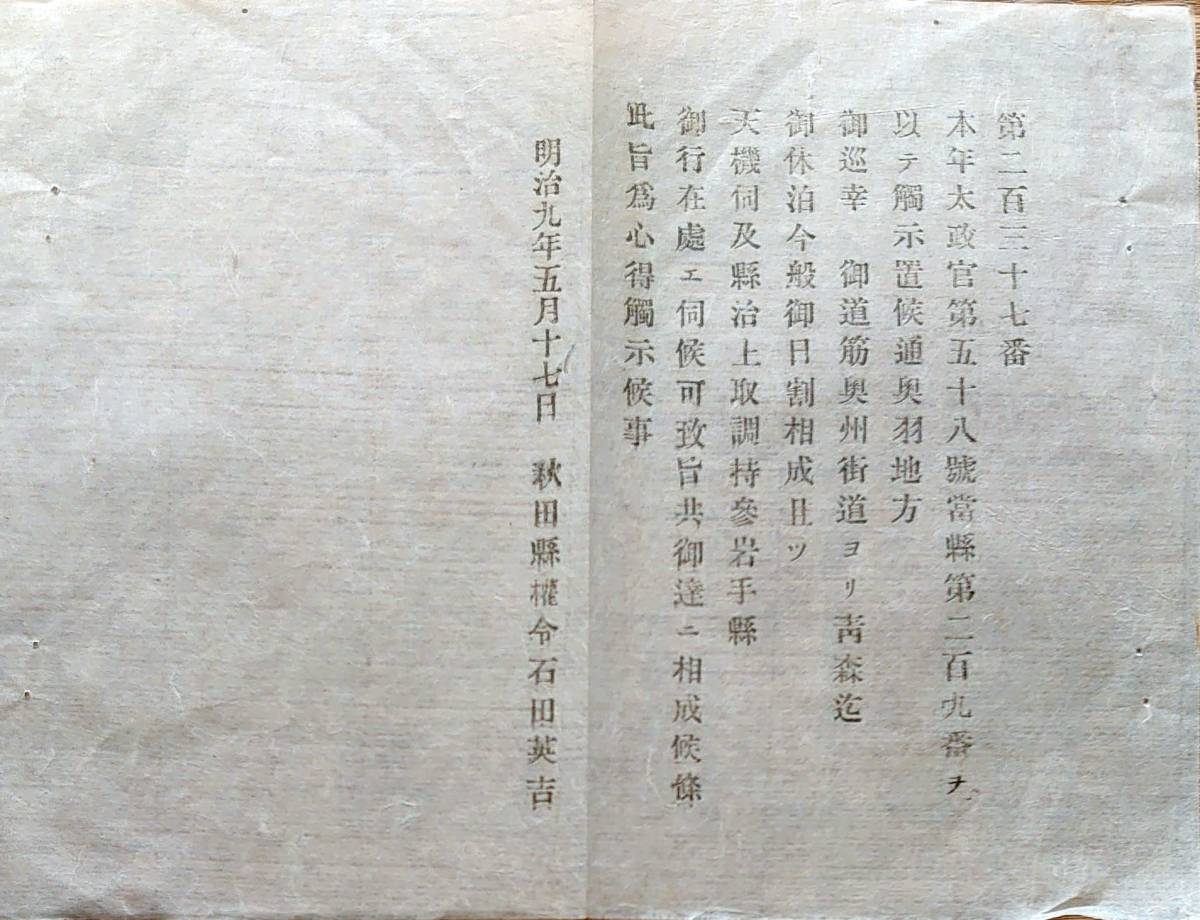 第二百三十七番
本年太政官第五十八號當縣第二百九番ヲ
以テ觸示置候通奥羽地方
御巡幸　御道筋奥州街道ヨリ靑森迄
御休泊今般御日割相成且ツ
天機伺及縣治上取調持參岩手縣
御行在處ェ伺候可致旨共御達ニ相成候條
此旨爲心得觸示候事
明治九年五月十七日　秋田縣權令石田英吉